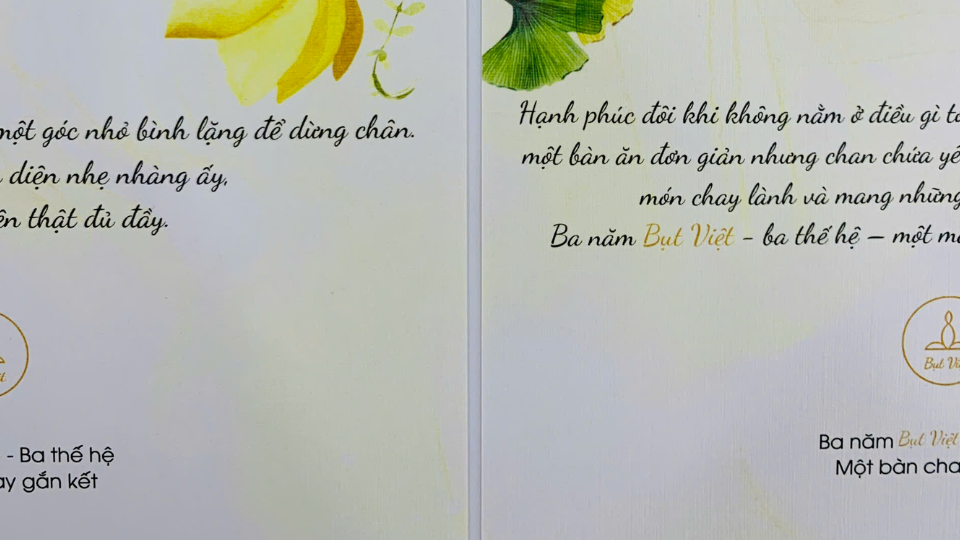 một góc nhỏ bình lặng để dừng chân.
diện nhẹ nhàng ấy,
thật đủ đầy.
- Ba thế hệ
gắn kết
Hạnh phúc đôi khi không nằm ở điều gì
một bàn ăn đơn giản nhưng chan chứa
món chay lành và mang những
Ba năm Bụt Việt - ba thế hệ – một
Bụt
Ba năm Bụt Việt
Một bàn